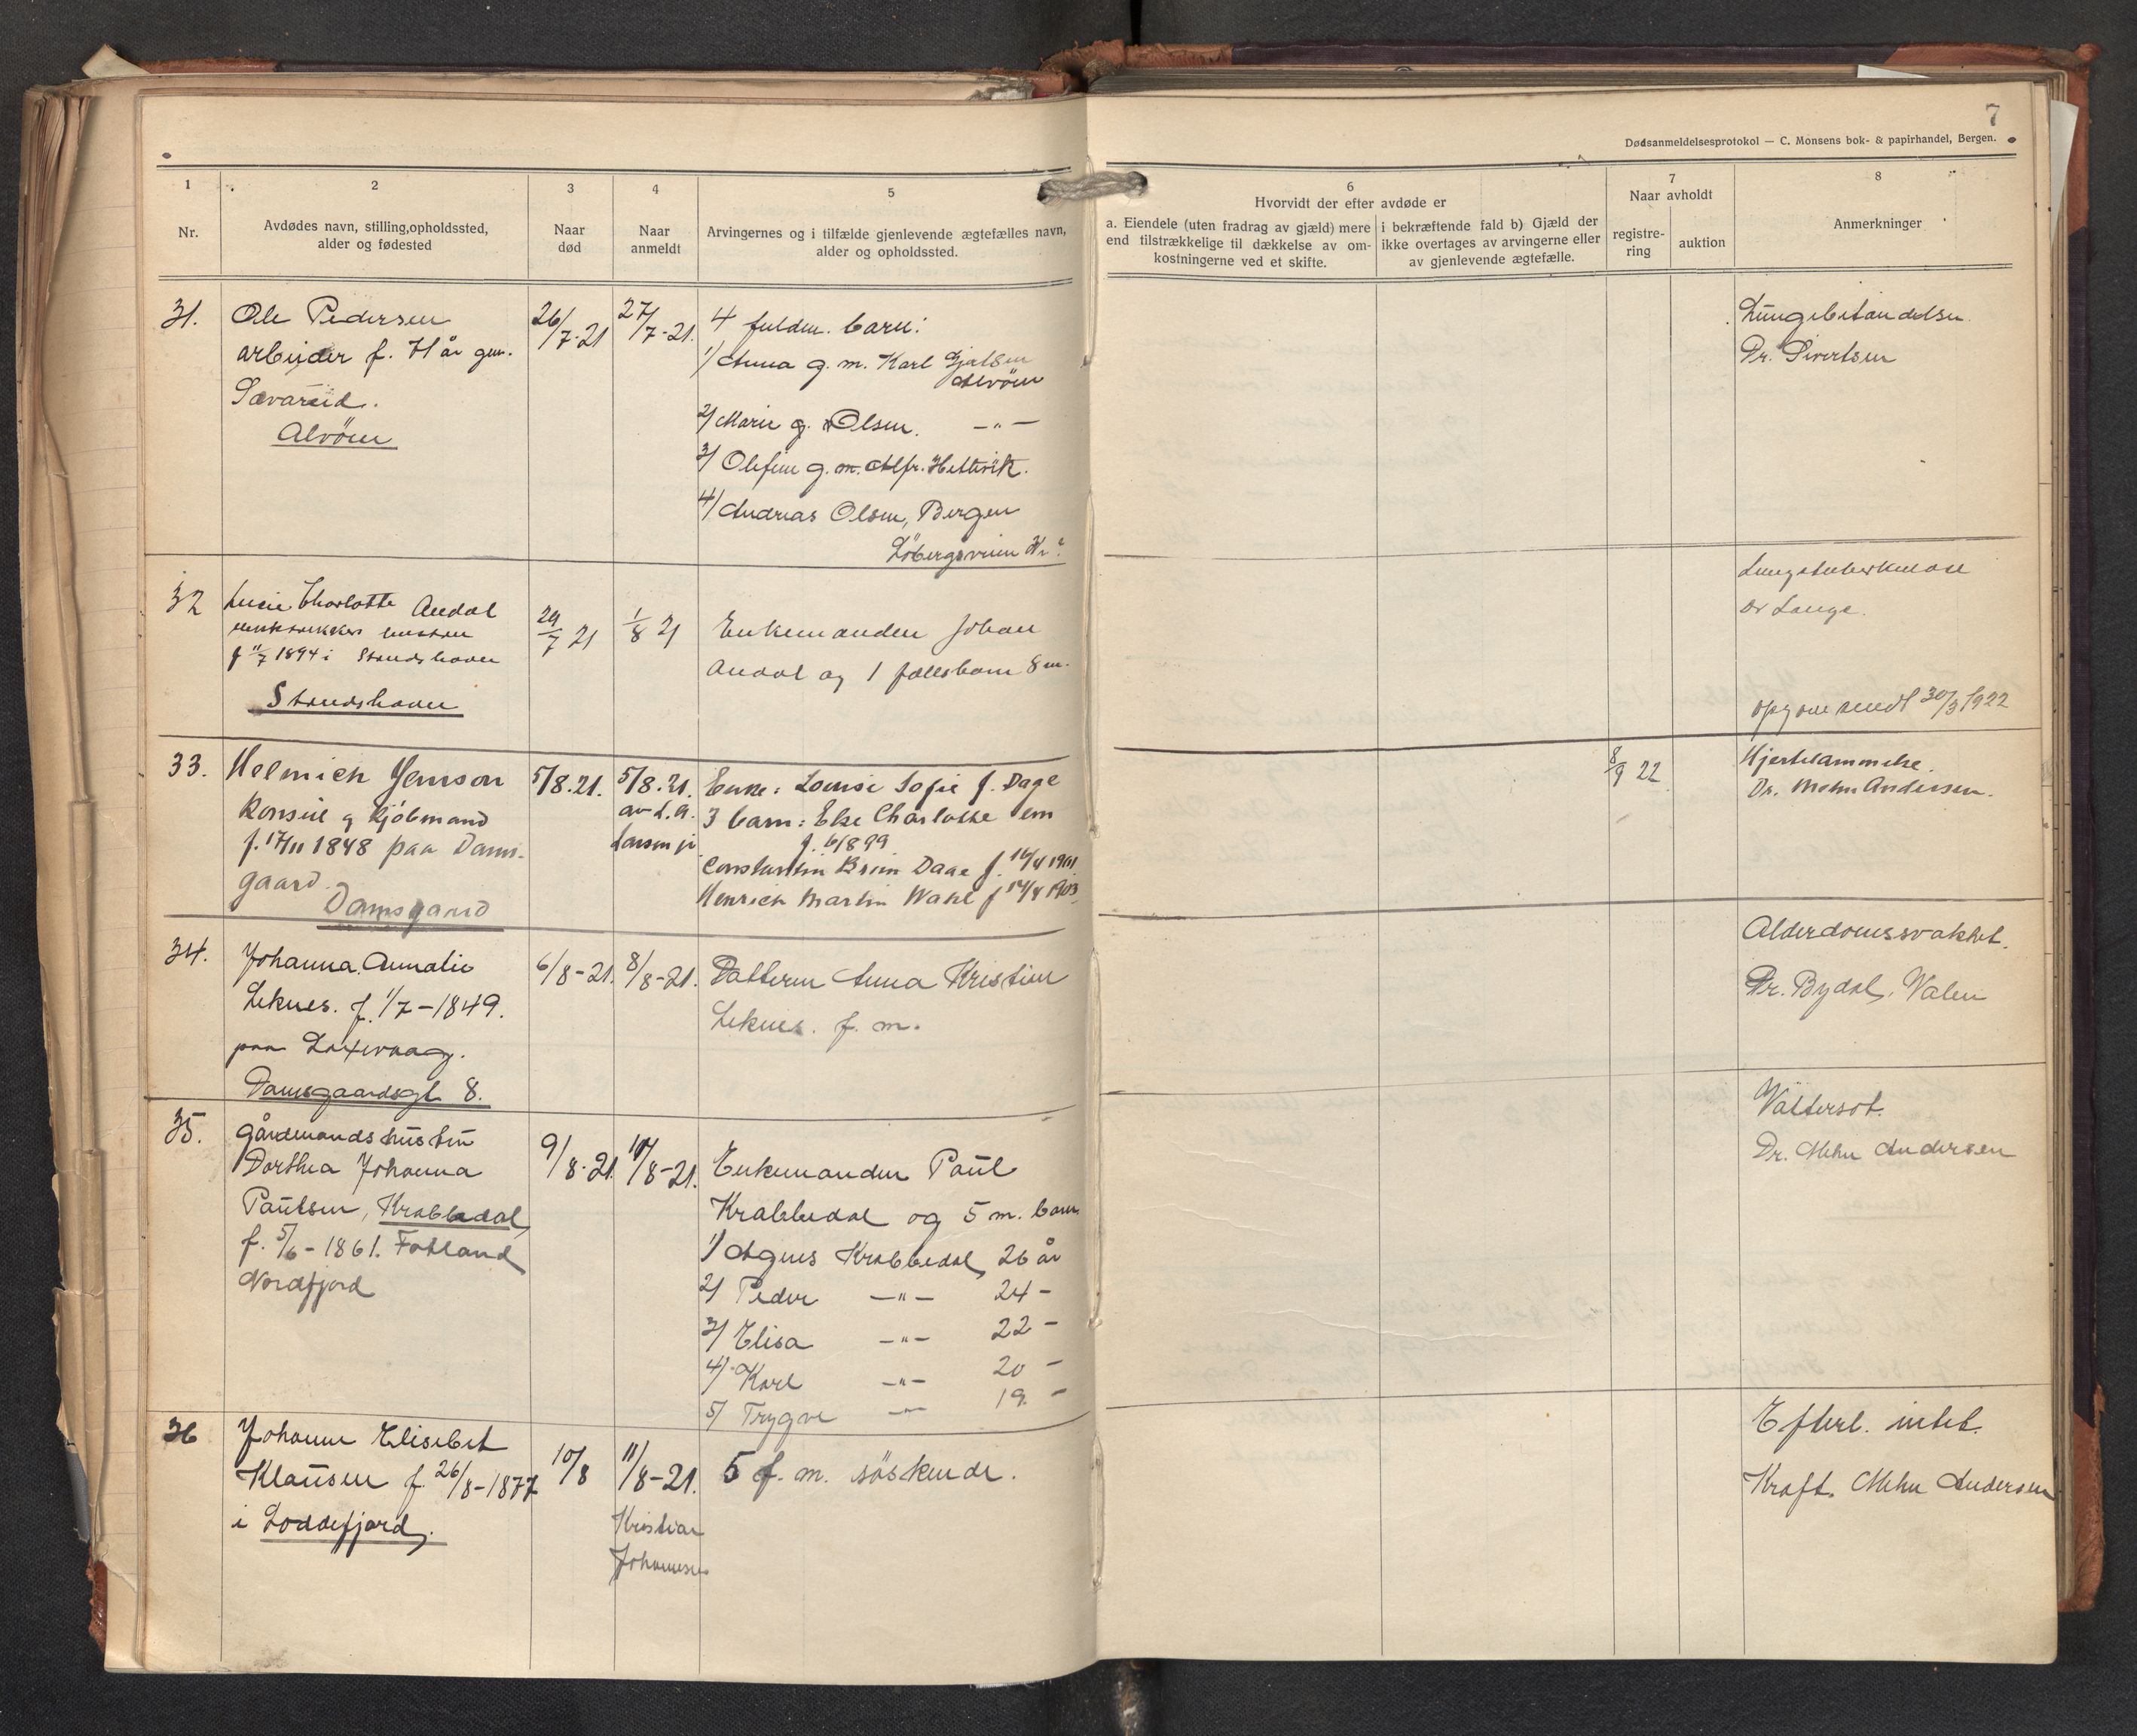 7
Dødsanmeldelsesprotokol — C. Monsens bok- & papirhandel, Bergen.
1
Nr.
2
Avdødes navn, stilling, opholdssted,
alder og fødested
3
Naar
død
4
Naar
anmeldt
5
Arvingernes og i tilfælde gjenlevende ægtefælles navn,
alder og opholdssted.
6
Hvorvidt der efter avdøde er
a. Eiendele (uten fradrag av gjæld) mere
end tilstrækkelige til dækkelse av om-
kostningerne ved et skifte.
i bekræftende fald b) Gjæld der
ikke overtages av arvingerne eller
av gjenlevende ægtefælle.
7
Naar avholdt
registre-
ring
auktion
8
Anmerkninger
31.
Ole Pedersen
arbeider f. år gm.
Sævareid.
Alvöen
26/7-21
27/7-21.
4 fuldm. barn:
1/ Anna g. m. Karl Gjertsen
Alvöen
2/ Marie g. Olsen. —„—
3/ Olefine g. m. Alfr. Hetlevik.
4/ Andreas Olsen, Bergen
Löbergsveien Nr.
Lungebetændelse.
Dr. Sivertsen
32
Charlotte Andal
f 11/7 1894 i Strudshavn
Strudshavn
29/7 21
1/8 21
Enkemanden Johan
Andal og 1 fællesbarn 8 m.
Lungetuberkulose
Dr Lange.
opg ove sendt 30/3 1922
33.
Helmich Jemson
Konsul og Kjöbmand
f. 17/11 1848 paa Dams-
gaard.
Damsgaard
5/8.21.
5/8.21.
av L.A.
Larsen jr
Enke: Louise Sofie f. Dage
3 barn: Else Charlotte
f. 6/8 99
Constantin Brun Daae f. 16/4 1901
Henrich Martin Wahl f 14/4 1903.
8/9 22
Hjertelammelse.
Dr. Mohn Andersen.
34.
Johanna Annalie
Leknes. f. 1/7-1849.
paa
Damsgaardsgt. 8.
6/8-21.
8/8-21.
Datteren Anna Kristine
Leknes. f. m.
Alderdomssvakhet.
Dr. Bydal, Valen
35.
Gårdmandshustru
Dorthea Johanna
Paulsen, Krabbedal,
f. 5/6-1861. Fotland
Nordfjord
9/8-21.
10/8-21.
Enkemanden Paul
Krabbedal og 5 m. barn
1/ Agnes Krabbedal, 26 år
2/ Peder —„— 24 -
3/ Elisa —„— 22 -
4/ Karl —„— 20 -
5/ Trygve —„— 19. -
Vattersot.
Dr. Mohn Andersen
36
Johanne Elisebet
Klausen f. 26/8-1877
i Loddefjord.
10/8
11/8-21.
Kristian
Johannesen
5 f. m. söskende.
Efterl. intet.
Kræft. Mohn Andersen